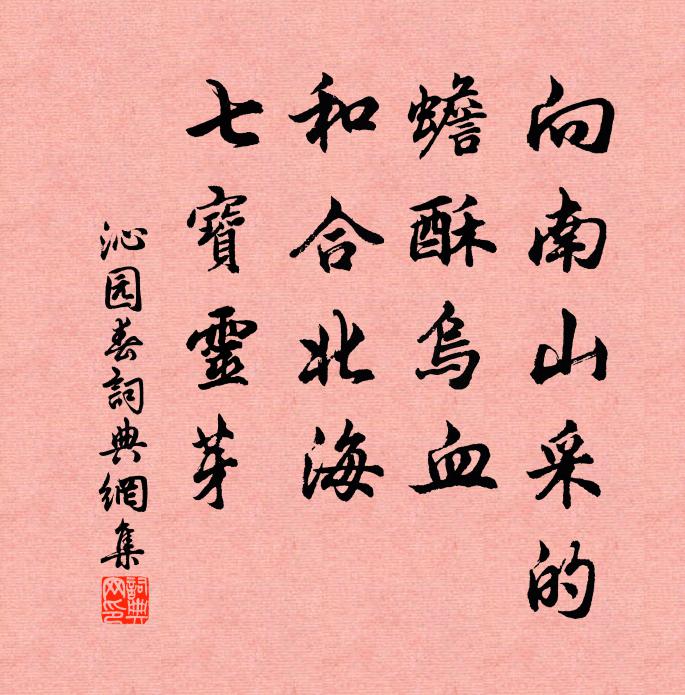 向南山采的
蟾酥烏血
和合北海
七寶靈芽
沁园春詞典網集
詞典网印